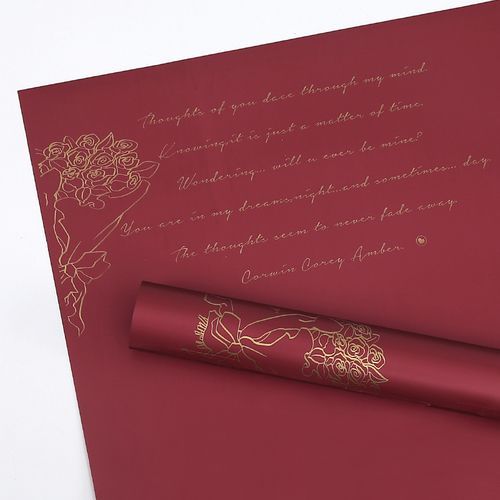 Thoughts of you dace through my mind.
Knowing,it is just a matter of time.
Wondering... will u ever be mine?
You are in my dreams,night...and sometimes... day
The thoughts seem to never fade away.
Corwin Corey Amber.